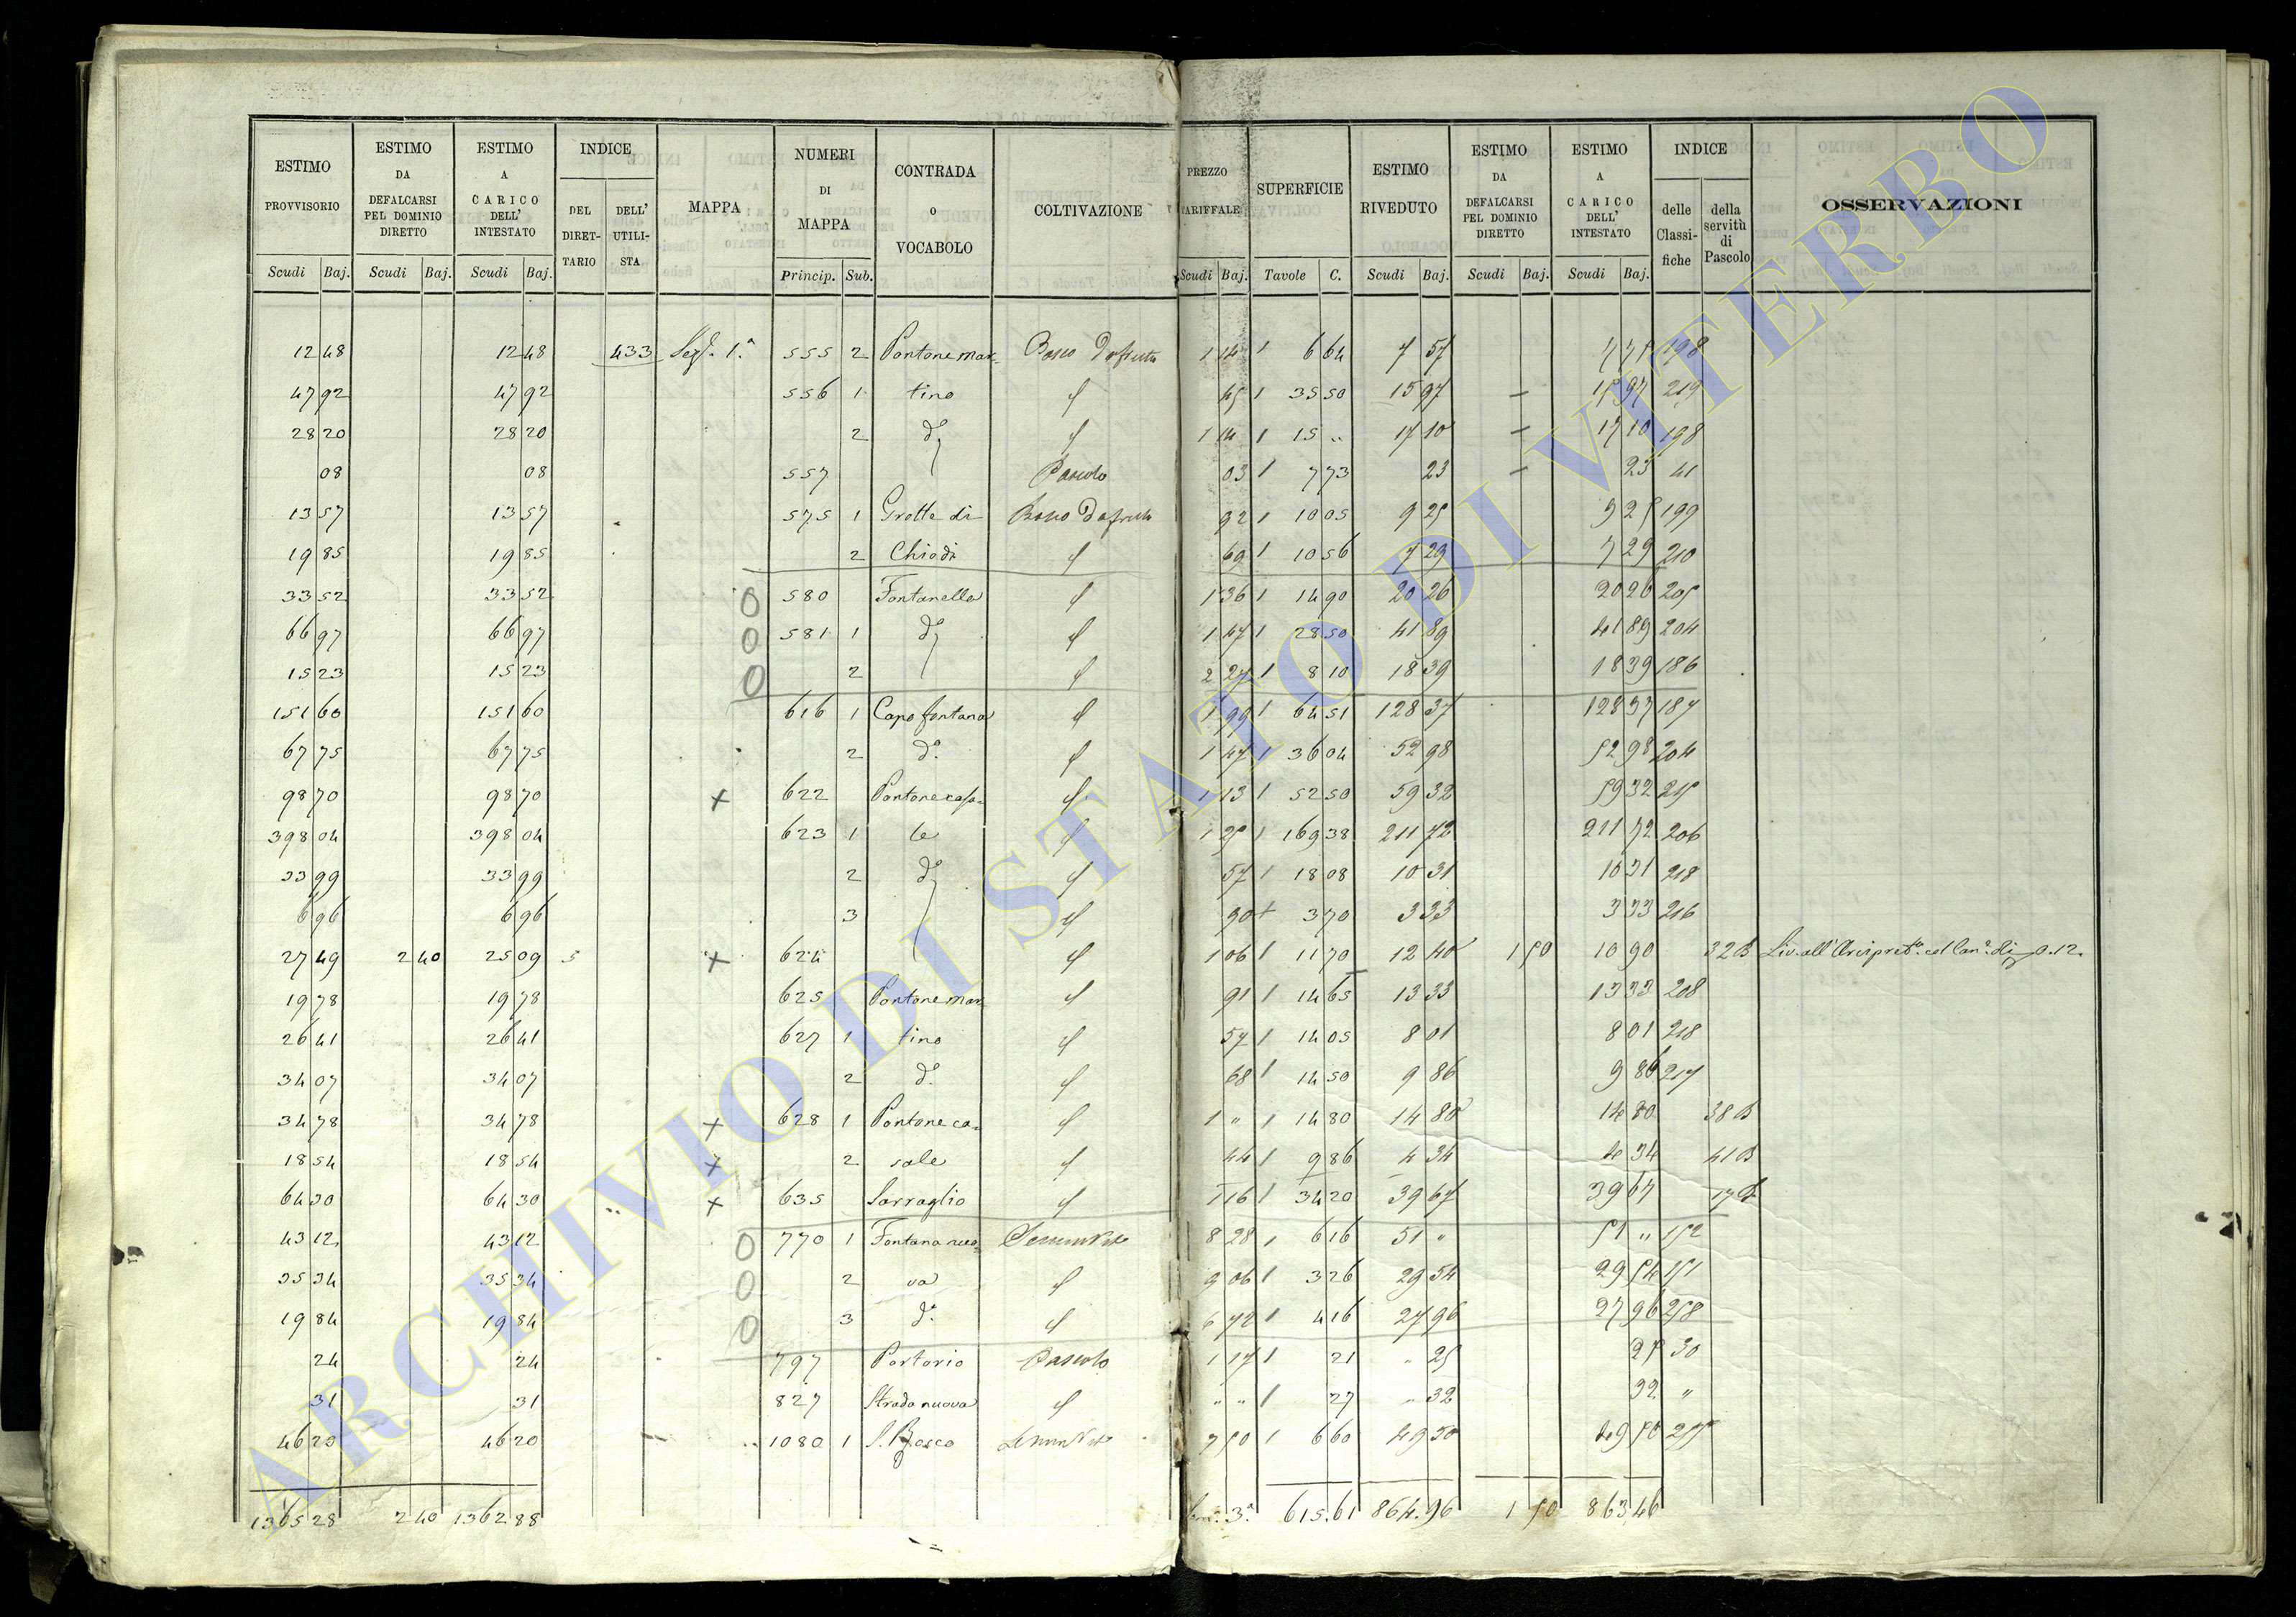 ESTIMO PROVVISORIO Scudi Baj.
ESTIMO DA DEFALCARSI PEL DOMINIO DIRETTO Scudi Baj.
ESTIMO A CARICO DELL' INTESTATO Scudi Baj.
INDICE DEL DIRETTARIO DELL' UTILISTA
MAPPA
NUMERI DI MAPPA Princip. Sub.
CONTRADA o VOCABOLO
COLTIVAZIONE
PREZZO TARIFFALE Scudi Baj.
SUPERFICIE Tavole C.
ESTIMO RIVEDUTO Scudi Baj.
ESTIMO DA DEFALCARSI PEL DOMINIO DIRETTO Scudi Baj.
ESTIMO A CARICO DELL' INTESTATO Scudi Baj.
INDICE delle Classifiche della servitù di Pascolo
OSSERVAZIONI
12 48 12 48 433 Sez. 1.ª 555 2 Pontone mar- Bosco da frutto 1 14 1 6 64 7 57 7 57 198
47 92 47 92 556 1 tino 45 1 35 50 15 97 – 15 97 219
28 20 28 20 2 dº 1 14 1 15 „ 17 10 – 17 10 198
08 08 557 Pascolo 03 1 7 73 23 – 23 41
13 57 13 57 575 1 Grotte di Bosco da frutto 92 1 10 05 9 25 9 25 199
19 85 19 85 2 Chiodi 69 1 10 56 7 29 7 29 210
33 52 33 52 0 580 Fontanella 1 36 1 14 90 20 26 20 26 205
66 97 66 97 0 581 1 dº 1 47 1 28 50 41 89 41 89 204
15 23 15 23 0 2 2 27 1 8 10 18 39 18 39 186
151 60 151 60 616 1 Capo fontana 1 99 1 64 51 128 37 128 37 187
67 75 67 75 2 dº 1 47 1 36 04 52 98 52 98 204
98 70 98 70 x 622 Pontone casa- 1 13 1 52 50 59 32 59 32 215
398 04 398 04 623 1 le 1 25 1 169 38 211 72 211 72 206
33 99 33 99 2 dº 57 1 18 08 10 31 10 31 218
6 96 6 96 3 90 1 3 70 3 33 3 33 216
27 49 2 40 25 09 5 x 624 1 06 1 11 70 12 40 1 50 10 90 32 B Liv. all' Arcipret.ª
19 78 19 78 625 Pontone mar- 91 1 14 65 13 33 13 33 208
26 41 26 41 627 1 tino 57 1 14 05 8 01 8 01 218
34 07 34 07 2 dº 68 1 14 50 9 86 9 86 217
34 78 34 78 x 628 1 Pontone ca- 1 „ 1 14 80 14 80 14 80 38 B
18 54 18 54 x 2 sale 44 1 9 86 4 34 4 34 41 B
64 30 64 30 x 635 Sarraglio 1 16 1 34 20 39 67 39 67 17
43 12 43 12 0 770 1 Fontana nuo- 8 28 1 6 16 51 „ 51 „ 152
35 34 35 34 0 2 va 9 06 1 3 26 29 54 29 54 151
19 84 19 84 0 3 dº 6 72 1 4 16 27 96 27 96 258
24 24 797 Portorio Pascolo 1 17 1 21 „ 25 25 30
31 31 827 Strada nuova „ „ 1 27 „ 32 32 „
46 20 46 20 1080 1 S. Rocco 7 50 1 6 60 49 50 49 50
1365 28 2 40 1362 88 615.61 864.96 1 50 863 46
ARCHIVIO DI STATO DI VITERBO